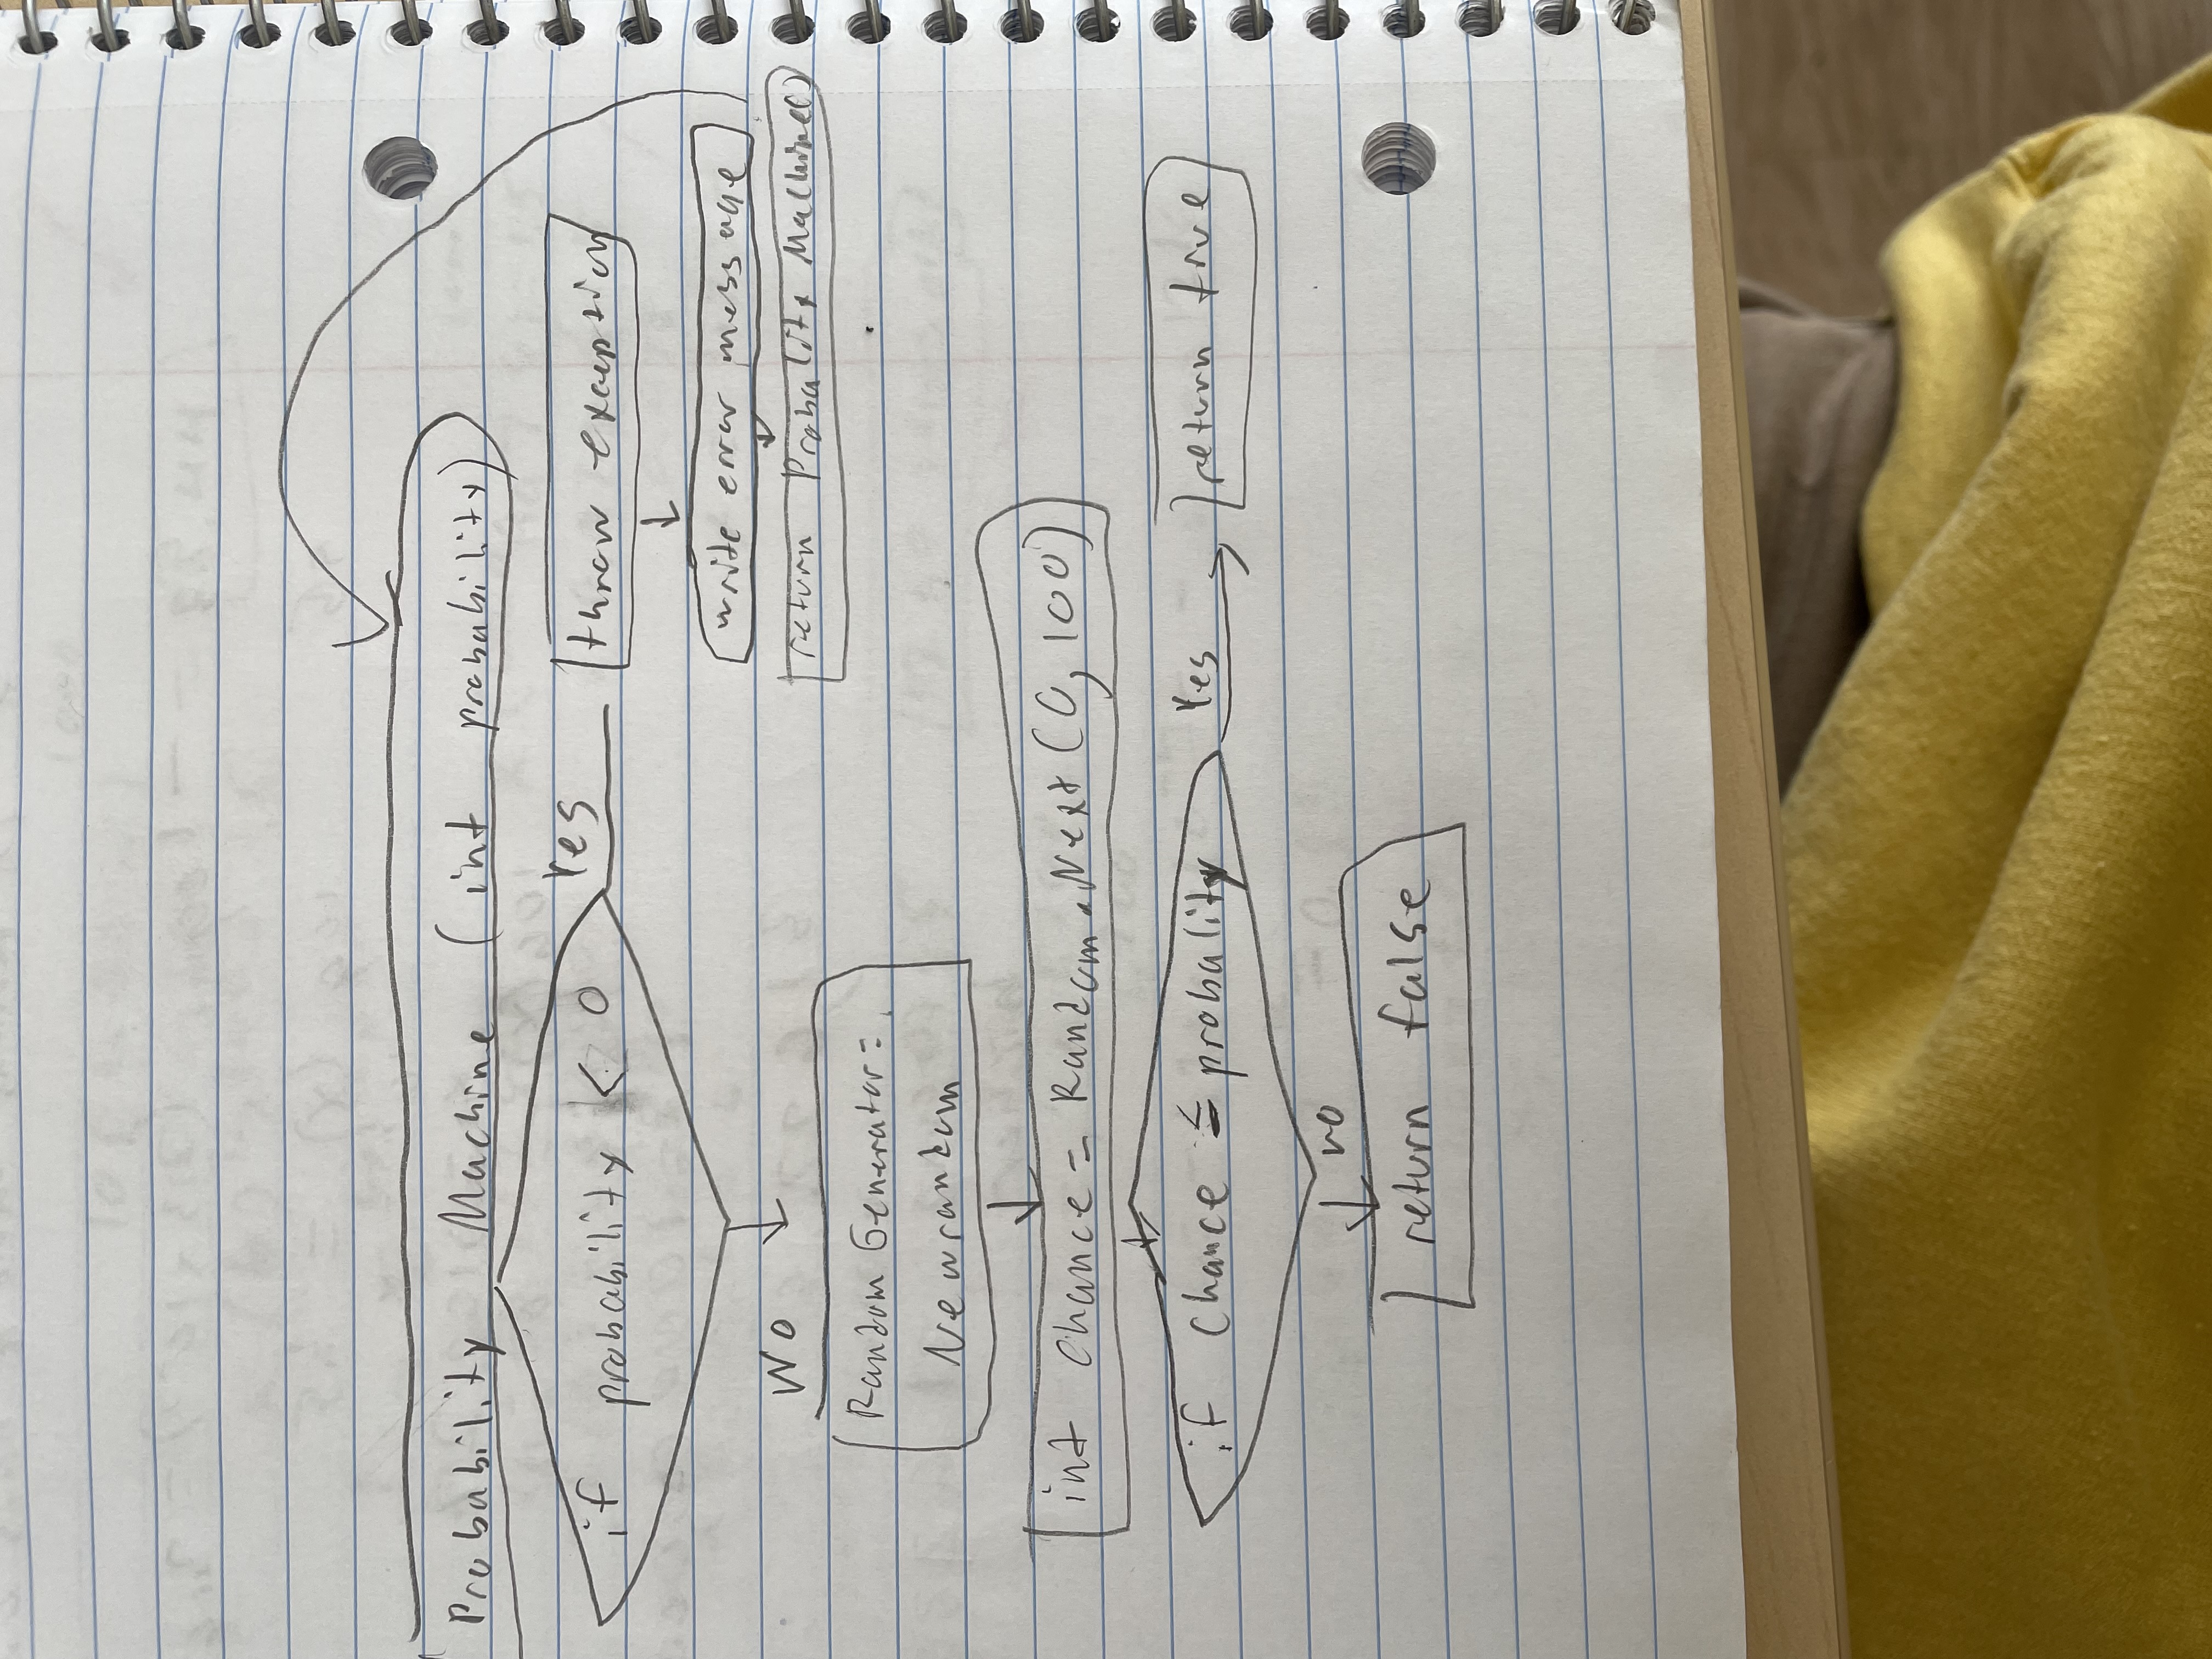 Probability Machine (int probability)
if probability < 0
Yes
throw exception
write error message
return Probality Machine()
No
Random Generator =
New random
int Chance = Random.Next(0, 100)
if Chance ≤ probality
Yes
return true
no
return false